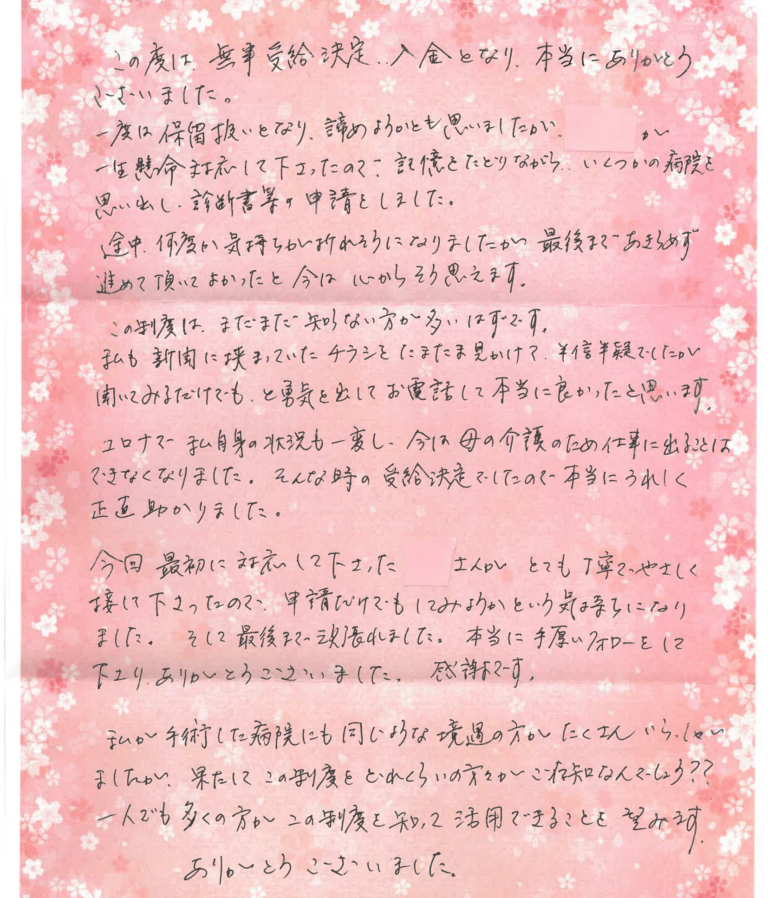 この度は、無事受給決定、入金となり、本当にありがとう
ございました。
一度は保留扱いとなり、諦めようかとも思いましたが、 が
一生懸命対応して下さったので、記憶をたどりながら、いくつかの病院を
思い出し、診断書等の申請をしました。
途中、何度か気持ちが折れそうになりましたが最後まであきらめず
進めて頂いてよかったと今は心からそう思えます。
この制度は、まだまだ知らない方が多いはずです。
私も新聞に挟まっていたチラシをたまたま見かけて、半信半疑でしたが
聞いてみるだけでも、と勇気を出してお電話して本当に良かったと思います。
コロナで私自身の状況も一変し、今は母の介護のため仕事に出ることは
できなくなりました。そんな時の受給決定でしたので本当にうれしく
正直助かりました。
今回最初に対応して下さった さんが とても丁寧でやさしく
接して下さったので、申請だけでもしてみようかという気持ちになり
ました。そして最後まで頑張れました。本当に手厚いフォローをして
下さり、ありがとうございました。感謝です。
私が手術した病院にも同じような境遇の方がたくさんいらっしゃい
ましたが、果たしてこの制度をどれくらいの方々がご存知なんでしょう??
一人でも多くの方がこの制度を知って活用できることを望みます。
ありがとうございました。